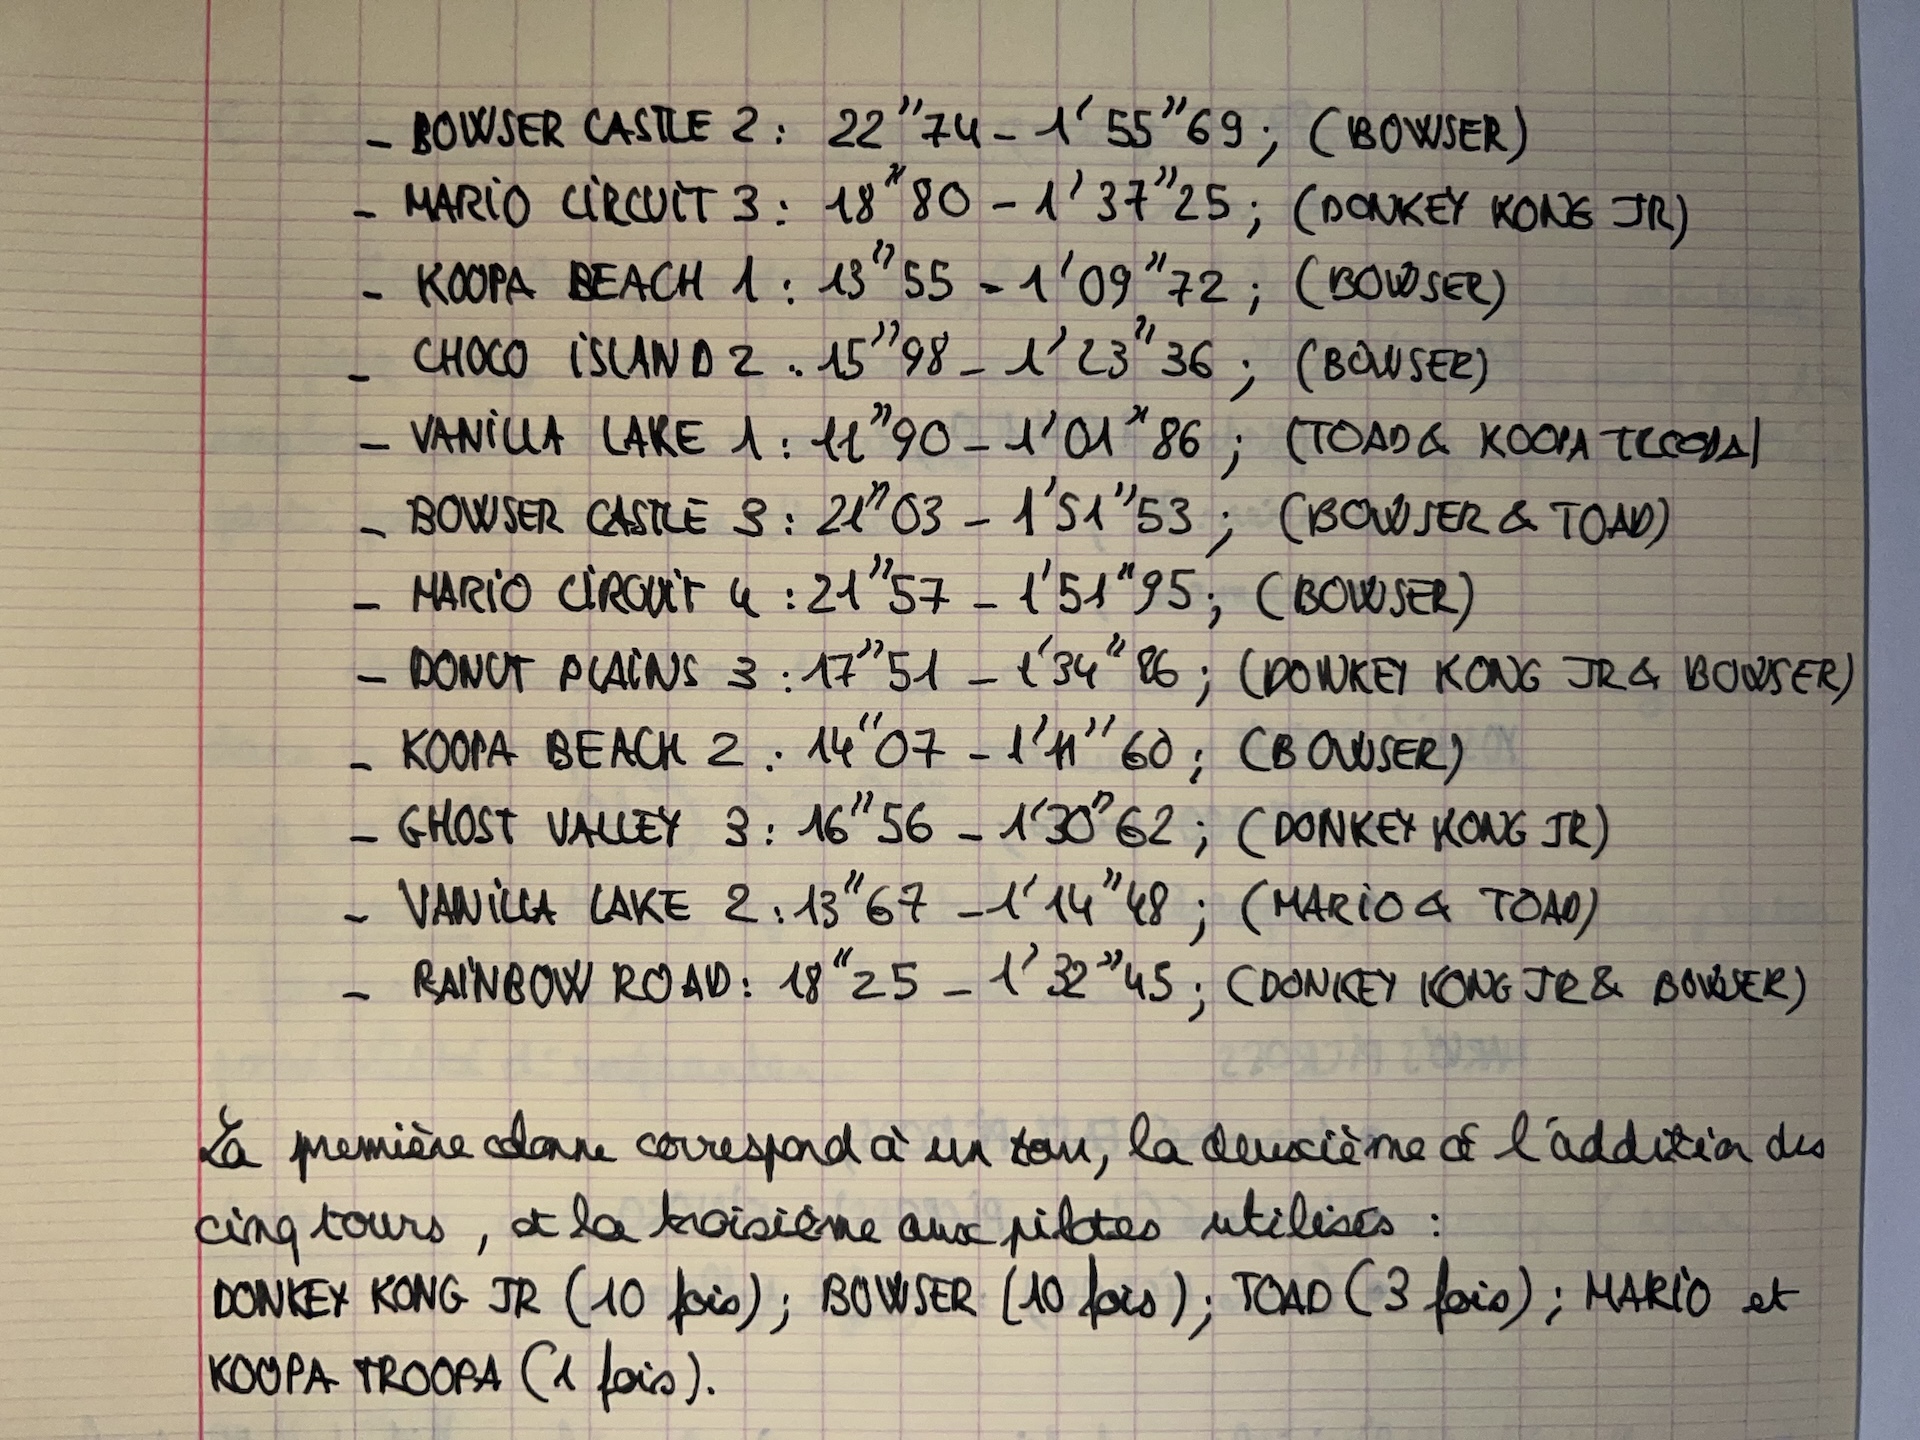 - BOWSER CASTLE 2 : 22"74 - 1'55"69 ; (BOWSER)
- MARiO CiRCUiT 3 : 18"80 - 1'37"25 ; (DONKEY KONG JR)
- KOOPA BEACH 1 : 13"55 - 1'09"72 ; (BOWSER)
- CHOCO iSLAND 2 : 15"98 - 1'23"36 ; (BOWSER)
- VANiLLA LAKE 1 : 11"90 - 1'01"86 ; (TOAD & KOOPA TROOPA)
- BOWSER CASTLE 3 : 21"03 - 1'51"53 ; (BOWSER & TOAD)
- MARiO CiRCUiT 4 : 21"57 - 1'51"95 ; (BOWSER)
- DONUT PLAiNS 3 : 17"51 - 1'34"86 ; (DONKEY KONG JR & BOWSER)
- KOOPA BEACH 2 : 14"07 - 1'11"60 ; (BOWSER)
- GHOST VALLEY 3 : 16"56 - 1'30"62 ; (DONKEY KONG JR)
- VANiLLA LAKE 2 : 13"67 - 1'14"48 ; (MARiO & TOAD)
- RAiNBOW ROAD : 18"25 - 1'32"45 ; (DONKEY KONG JR & BOWSER)
La première colonne correspond à un tour, la deuxième à l'addition des
cinq tours, et la troisième aux pilotes utilisés :
DONKEY KONG JR (10 fois) ; BOWSER (10 fois) ; TOAD (3 fois) ; MARiO et
KOOPA TROOPA (1 fois).